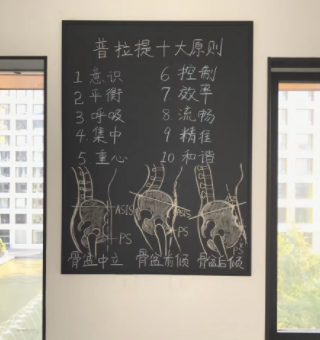 普拉提十大原则
1 意识
2 平衡
3 呼吸
4. 集中
5 重心
6 控制
7 效率
8 流畅
9 精准
10 和谐
ASIS
PS
PS
骨盆中立
骨盆前倾
骨盆后倾